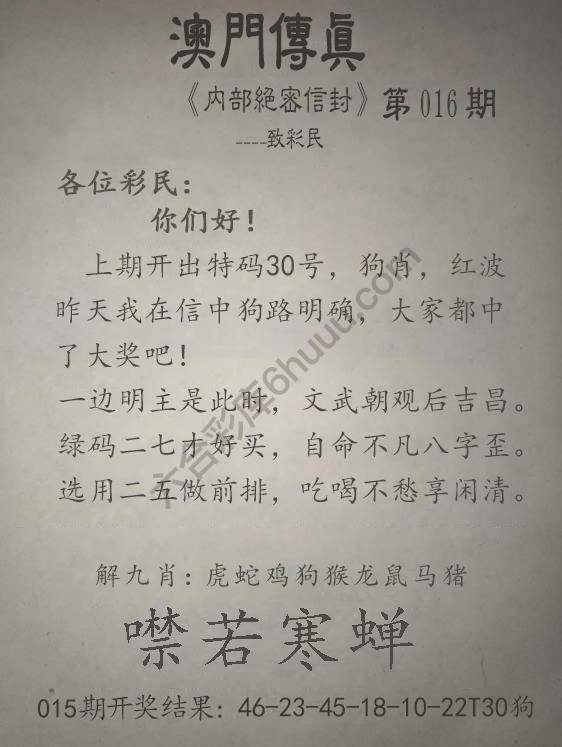 澳門傳真
《内部絕密信封》第016期
----致彩民
各位彩民：
你们好！
上期开出特码30号，狗肖，红波
昨天我在信中狗路明确，大家都中
了大奖吧！
一边明主是此时，文武朝观后吉昌。
绿码二七才好买，自命不凡八字歪。
选用二五做前排，吃喝不愁享闲清。
解九肖：虎蛇鸡狗猴龙鼠马猪
噤若寒蝉
015期开奖结果：46-23-45-18-10-22T30狗
六合彩库6huuu.com